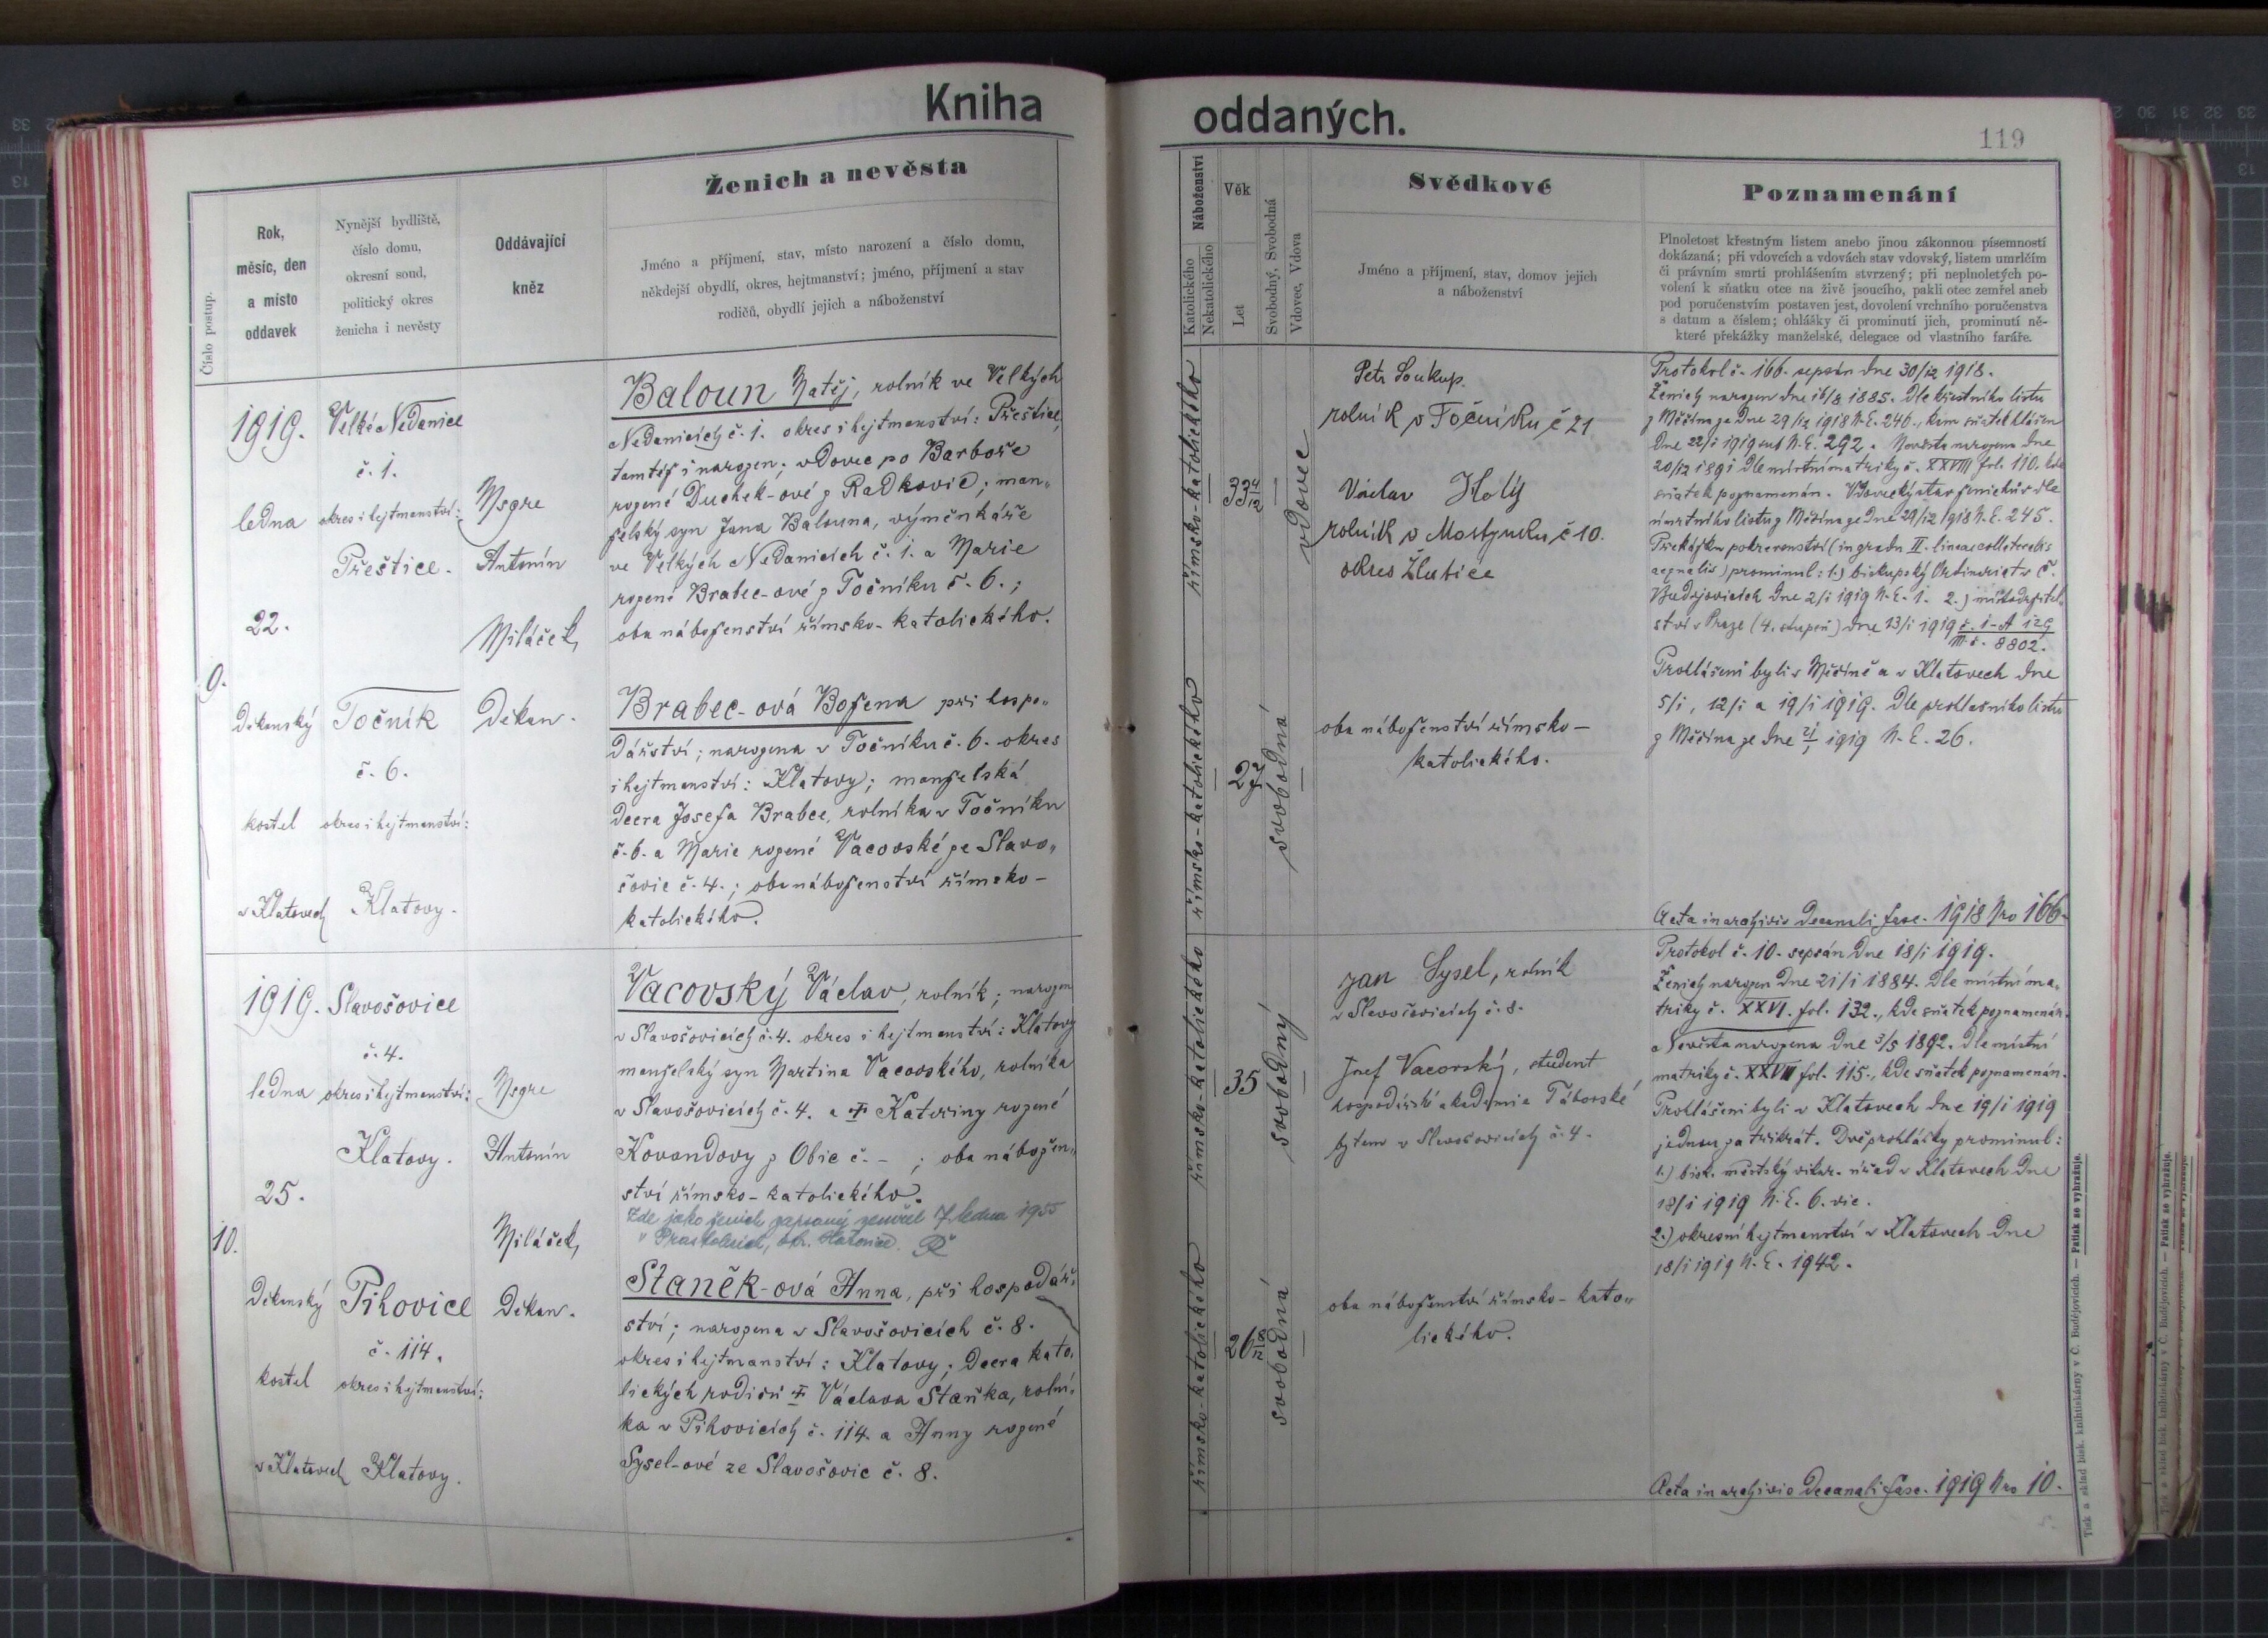 Kniha
oddaných.
119
Číslo postup.
Rok,
měsíc, den
a místo
oddavek
Nynější bydliště,
číslo domu,
okresní soud,
politický okres
ženicha i nevěsty
Oddávající
kněz
Ženich a nevěsta
Jméno a příjmení, stav, místo narození a číslo domu,
někdejší obydlí, okres, hejtmanství; jméno, příjmení a stav
rodičů, obydlí jejich a náboženství
Náboženství
Katolického
Nekatolického
Věk
Let
Svobodný, Svobodná
Vdovec, Vdova
Svědkové
Jméno a příjmení, stav, domov jejich
a náboženství
Poznamenání
Plnoletost křestným listem anebo jinou zákonnou písemností
dokázaná; při vdovcích a vdovách stav vdovský, listem umrlčím
či právním smrti prohlášením stvrzený; při neplnoletých po-
volení k sňatku otce na živě jsoucího, pakli otec zemřel aneb
pod poručenstvím postaven jest, dovolení vrchního poručenstva
s datum a číslem; ohlášky či prominutí jich, prominutí ně-
které překážky manželské, delegace od vlastního faráře.
9.
1919.
ledna
22.
Děkanský
kostel
v Klatovech
Velké Nedanice
č. 1.
okres i hejtmanství:
Přeštice.
Točník
č. 6.
okres i hejtmanství:
Klatovy.
Msgre
Antonín
Miláček,
Děkan.
Baloun Matěj, rolník ve Velkých
Nedanicích č. 1. okres i hejtmanství: Přeštice,
tamtéž i narozen; vdovec po Barboře
rozené Duchek-ové z Radkovic; man„
želský syn Jana Balouna, výměnkáře
ve Velkých Nedanicích č. 1. a Marie
rozené Brabec-ové z Točníku č. 6.;
oba náboženství římsko-katolického.
Brabec-ová Božena při hospo„
dářství; narozena v Točníku č. 6. okres
i hejtmanství: Klatovy; manželská
dcera Josefa Brabce, rolníka v Točníku
č. 6. a Marie rozené Vacovské ze Slavo„
šovic č. 4.; oba náboženství římsko-
katolického.
římsko-katolického
33 4/12
vdovec
římsko-katolického
27
svobodná
Petr Soukup.
rolník v Točníku č 21
Václav Holý
rolník v Mostyřku č 10.
okres Žlutice
oba náboženství římsko-
katolického.
Protokol č. 166. sepsán dne 30/12 1918.
Ženich narozen dne 16/8 1885. Dle křestního listu
z Měčína ze dne 29/12 1918 N.E. 246., kam sňatek hlášen
dne 22/i 1919 sub N.E. 292. Nevěsta narozena dne
20/12 1891 dle místní matriky č. XXVIII fol. 110. kde
sňatek poznamenán. Vdovecký stav ženichův dle
úmrtního listu z Měčína ze dne 29/12 1918 N.E. 245.
Překážku pokrevenství (in gradu II. lineae collateralis
aequalis) prominul: 1.) biskupský Ordinariat v Č.
Budějovicích dne 2/i 1919 N.E. 1. 2.) místodržitel„
ství v Praze (4. stupeň) dne 13/i 1919 č. 1-A 129
m.č. 8802.
Prohlášeni byli v Měčíně a v Klatovech dne
5/i, 12/i a 19/i 1919. Dle prohlasního listu
z Měčína ze dne 21/i 1919 N.E. 26.
Acta in archivio decanali fasc. 1918 Nro 166.
10.
1919.
ledna
25.
Děkanský
kostel
v Klatovech
Slavošovice
č. 4.
okres i hejtmanství:
Klatovy.
Pihovice
č. 114.
okres i hejtmanství:
Klatovy.
Msgre
Antonín
Miláček,
Děkan.
Vacovský Václav, rolník; narozen
v Slavošovicích č. 4. okres i hejtmanství: Klatovy
manželský syn Martina Vacovského, rolníka
v Slavošovicích č. 4. a † Kateřiny rozené
Kovandovy z Obic č. - ; oba nábožen„
ství římsko-katolického.
Zde jako ženich zapsaný zemřel 7. ledna 1955
Staněk-ová Anna, při hospodář„
ství; narozena v Slavošovicích č. 8.
okres i hejtmanství: Klatovy; dcera kato„
lických rodičů † Václava Staňka, rolní„
ka v Pihovicích č. 114. a Anny rozené
Sysel-ové ze Slavošovic č. 8.
římsko-katolického
35
svobodný
římsko-katolického
26 8/12
svobodná
Jan Sysel, rolník
v Slavošovicích č. 8.
Josef Vacovský, student
hospodářské akademie Táborské,
bytem v Slavošovicích č. 4.
oba náboženství římsko-kato„
lického.
Protokol č. 10. sepsán dne 18/i 1919.
Ženich narozen dne 21/i 1884. Dle místní ma„
triky č. XXVI. fol. 132., kde sňatek poznamenán.
a Nevěsta narozena dne 3/5 1892. dle místní
matriky č. XXVIII fol. 115., kde sňatek poznamenán.
Prohlášeni byli v Klatovech dne 19/i 1919
jednou za třikrát. Dvě prohlášky prominul:
1.) bisk. městský vikar. úřad v Klatovech dne
18/i 1919 N.E. 6. vic.
2.) okresní hejtmanství v Klatovech dne
18/i 1919 N.E. 1942.
Acta in archivio decanali fasc. 1919 Nro 10.
Tisk a sklad bisk. knihtiskárny v Č. Budějovicích. — Patisk se vyhražuje.